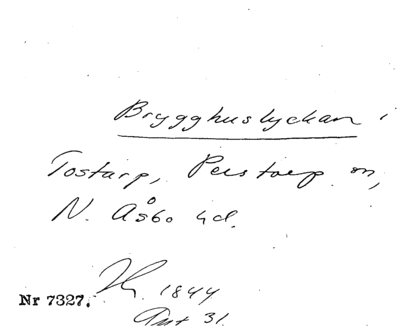 Brygghuslyckan i
Tostarp, Perstorp sn,
N. Åsbo hd.
1844
Nr 7327.
Ant 31.